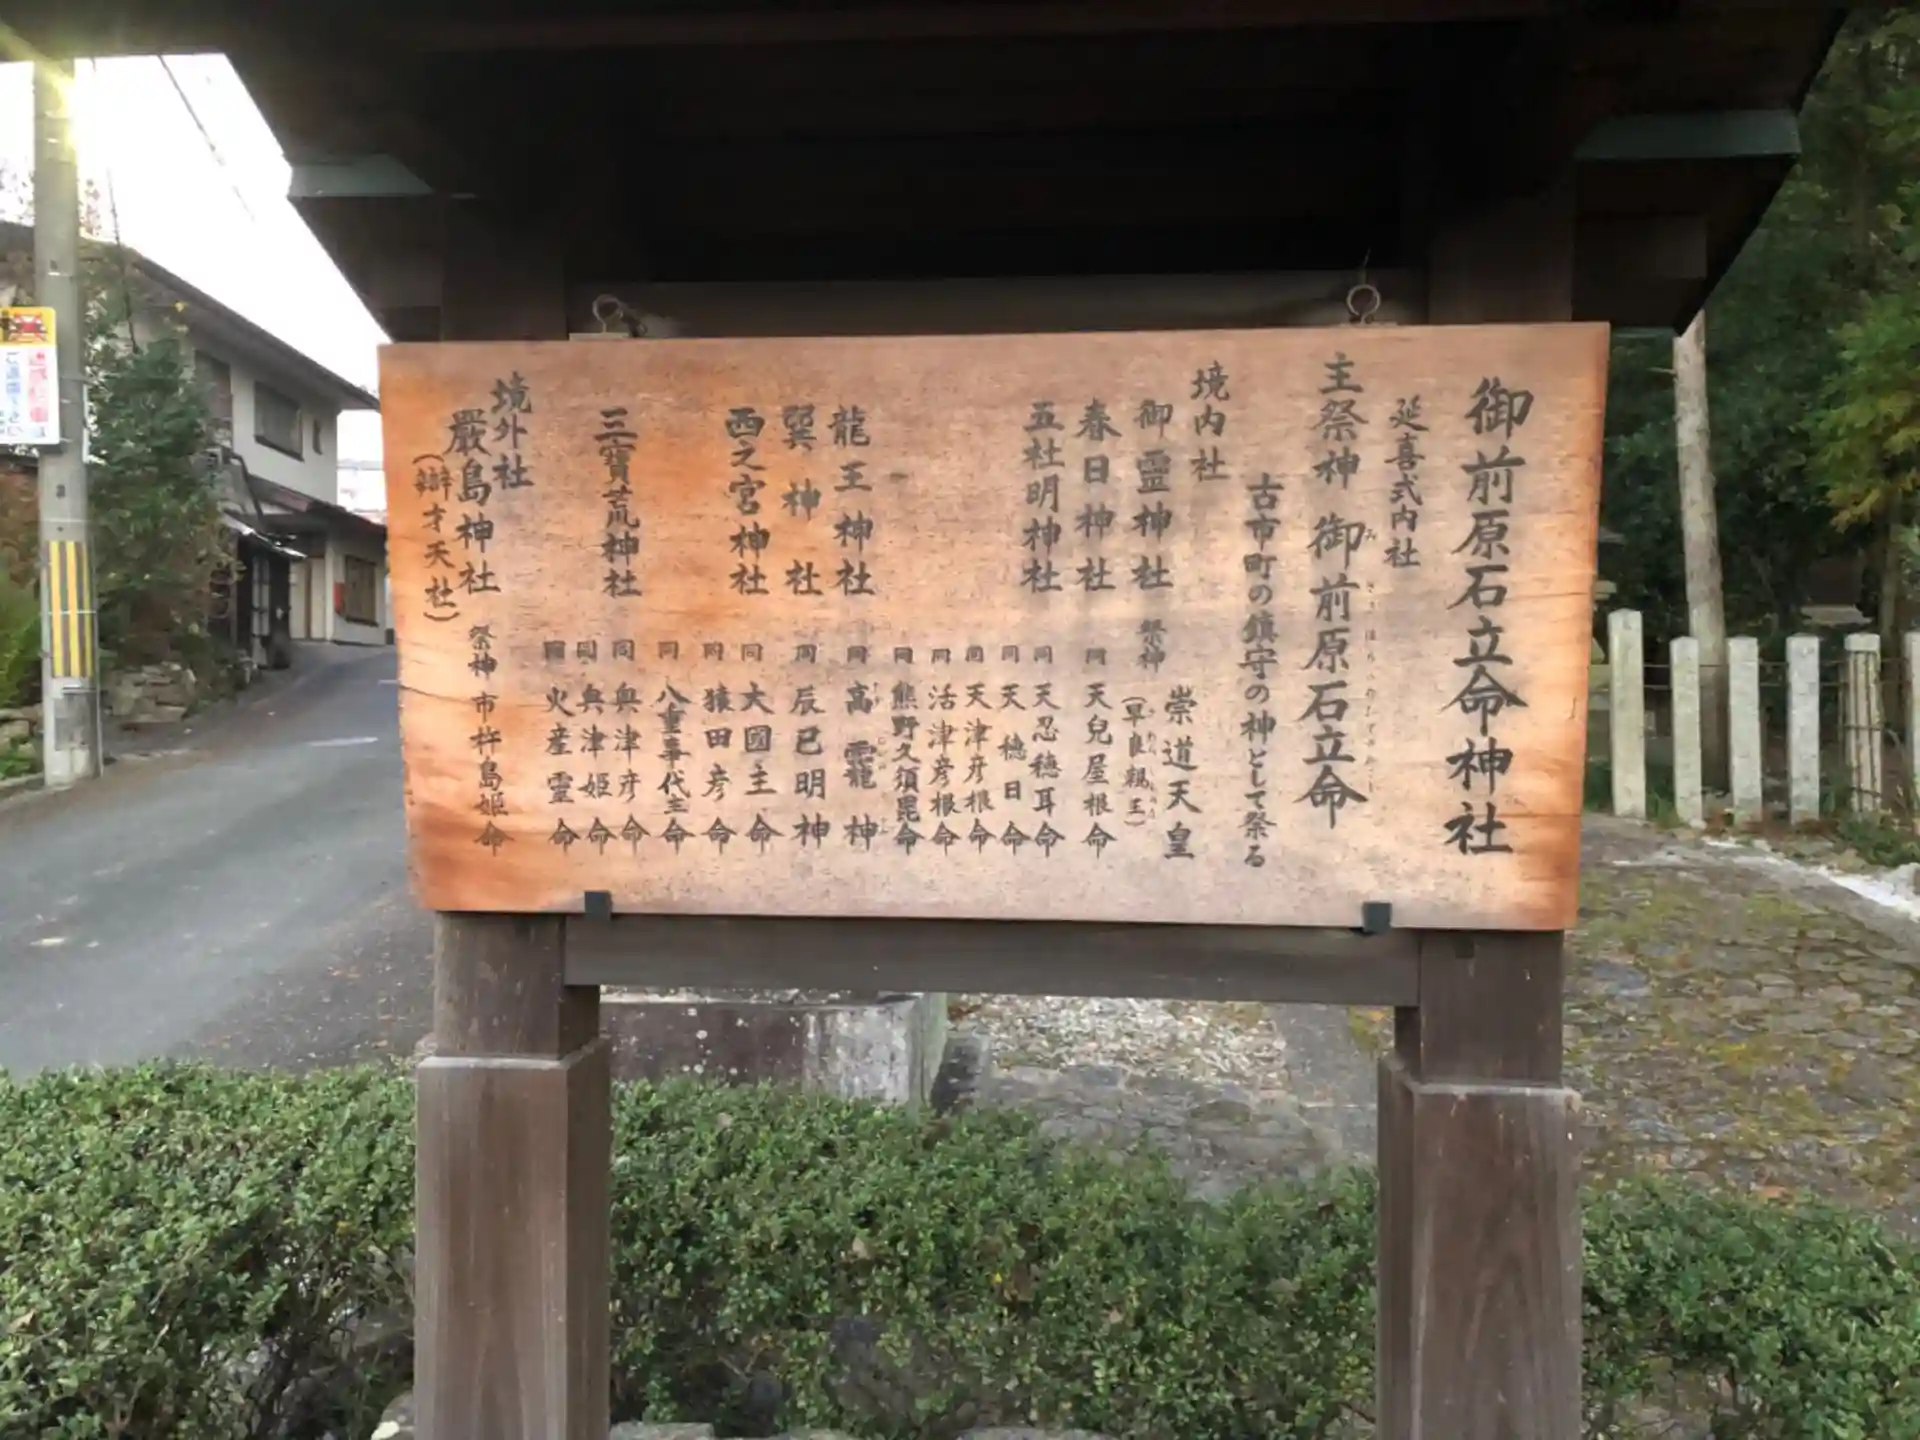 御前原石立命神社
延喜式内社
主祭神 御前原石立命
古市町の鎮守の神として祭る
境内社
御霊神社 祭神 崇道天皇
(早良親王)
春日神社 同 天兒屋根命
五社明神社 同 天忍穂耳命
同 天穂日命
同 天津彦根命
同 活津彦根命
同 熊野久須毘命
龍王神社 同 高龗神
巽神社 同 辰巳明神
西之宮神社 同 大國主命
同 猿田彦命
同 八重事代主命
三寳荒神社 同 奥津彦命
同 奥津姫命
同 火産霊命
境外社
嚴島神社 祭神 市杵島姫命
(辯才天社)